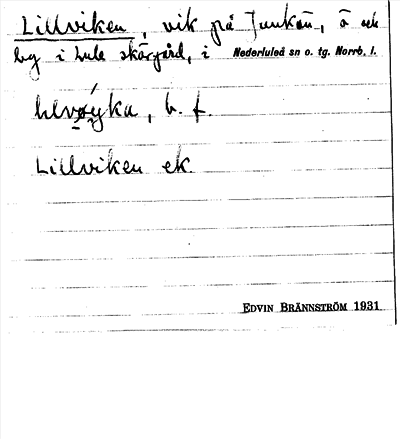 Lillviken, vik på Junkön, ö och
by i Lule skärgård, i Nederluleå sn o. tg. Norrb. l.
b. f.
Lillviken ek.
EDVIN BRÄNNSTRÖM 1931